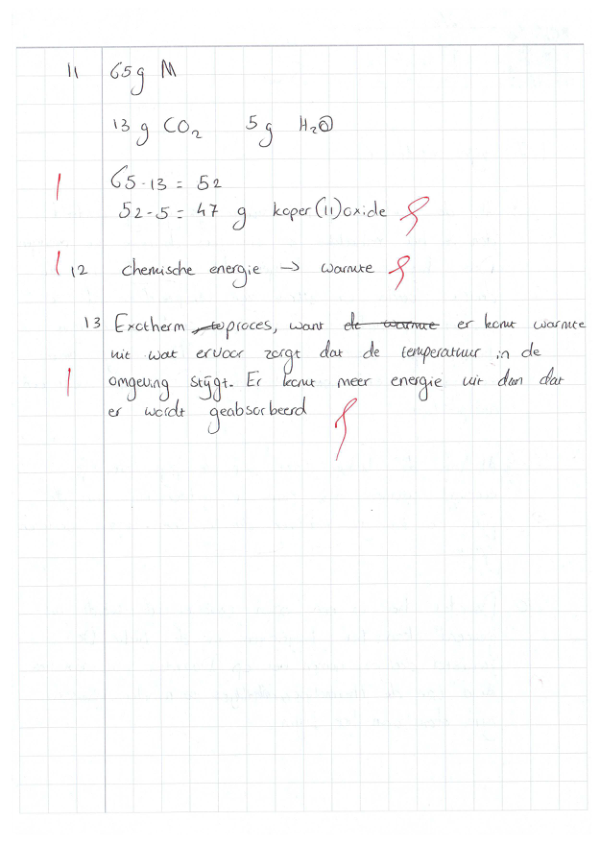 11 65g M
13 g CO₂ 5 g H₂O
65-13 = 52
1
52-5 = 47 g koper(II)oxide
1 12 chemische energie → warmte
13 Exotherm proces, want de warmte er komt warmte
uit wat ervoor zorgt dat de temperatuur in de
1 omgeving stijgt. Er komt meer energie uit dan dat
er wordt geabsorbeerd